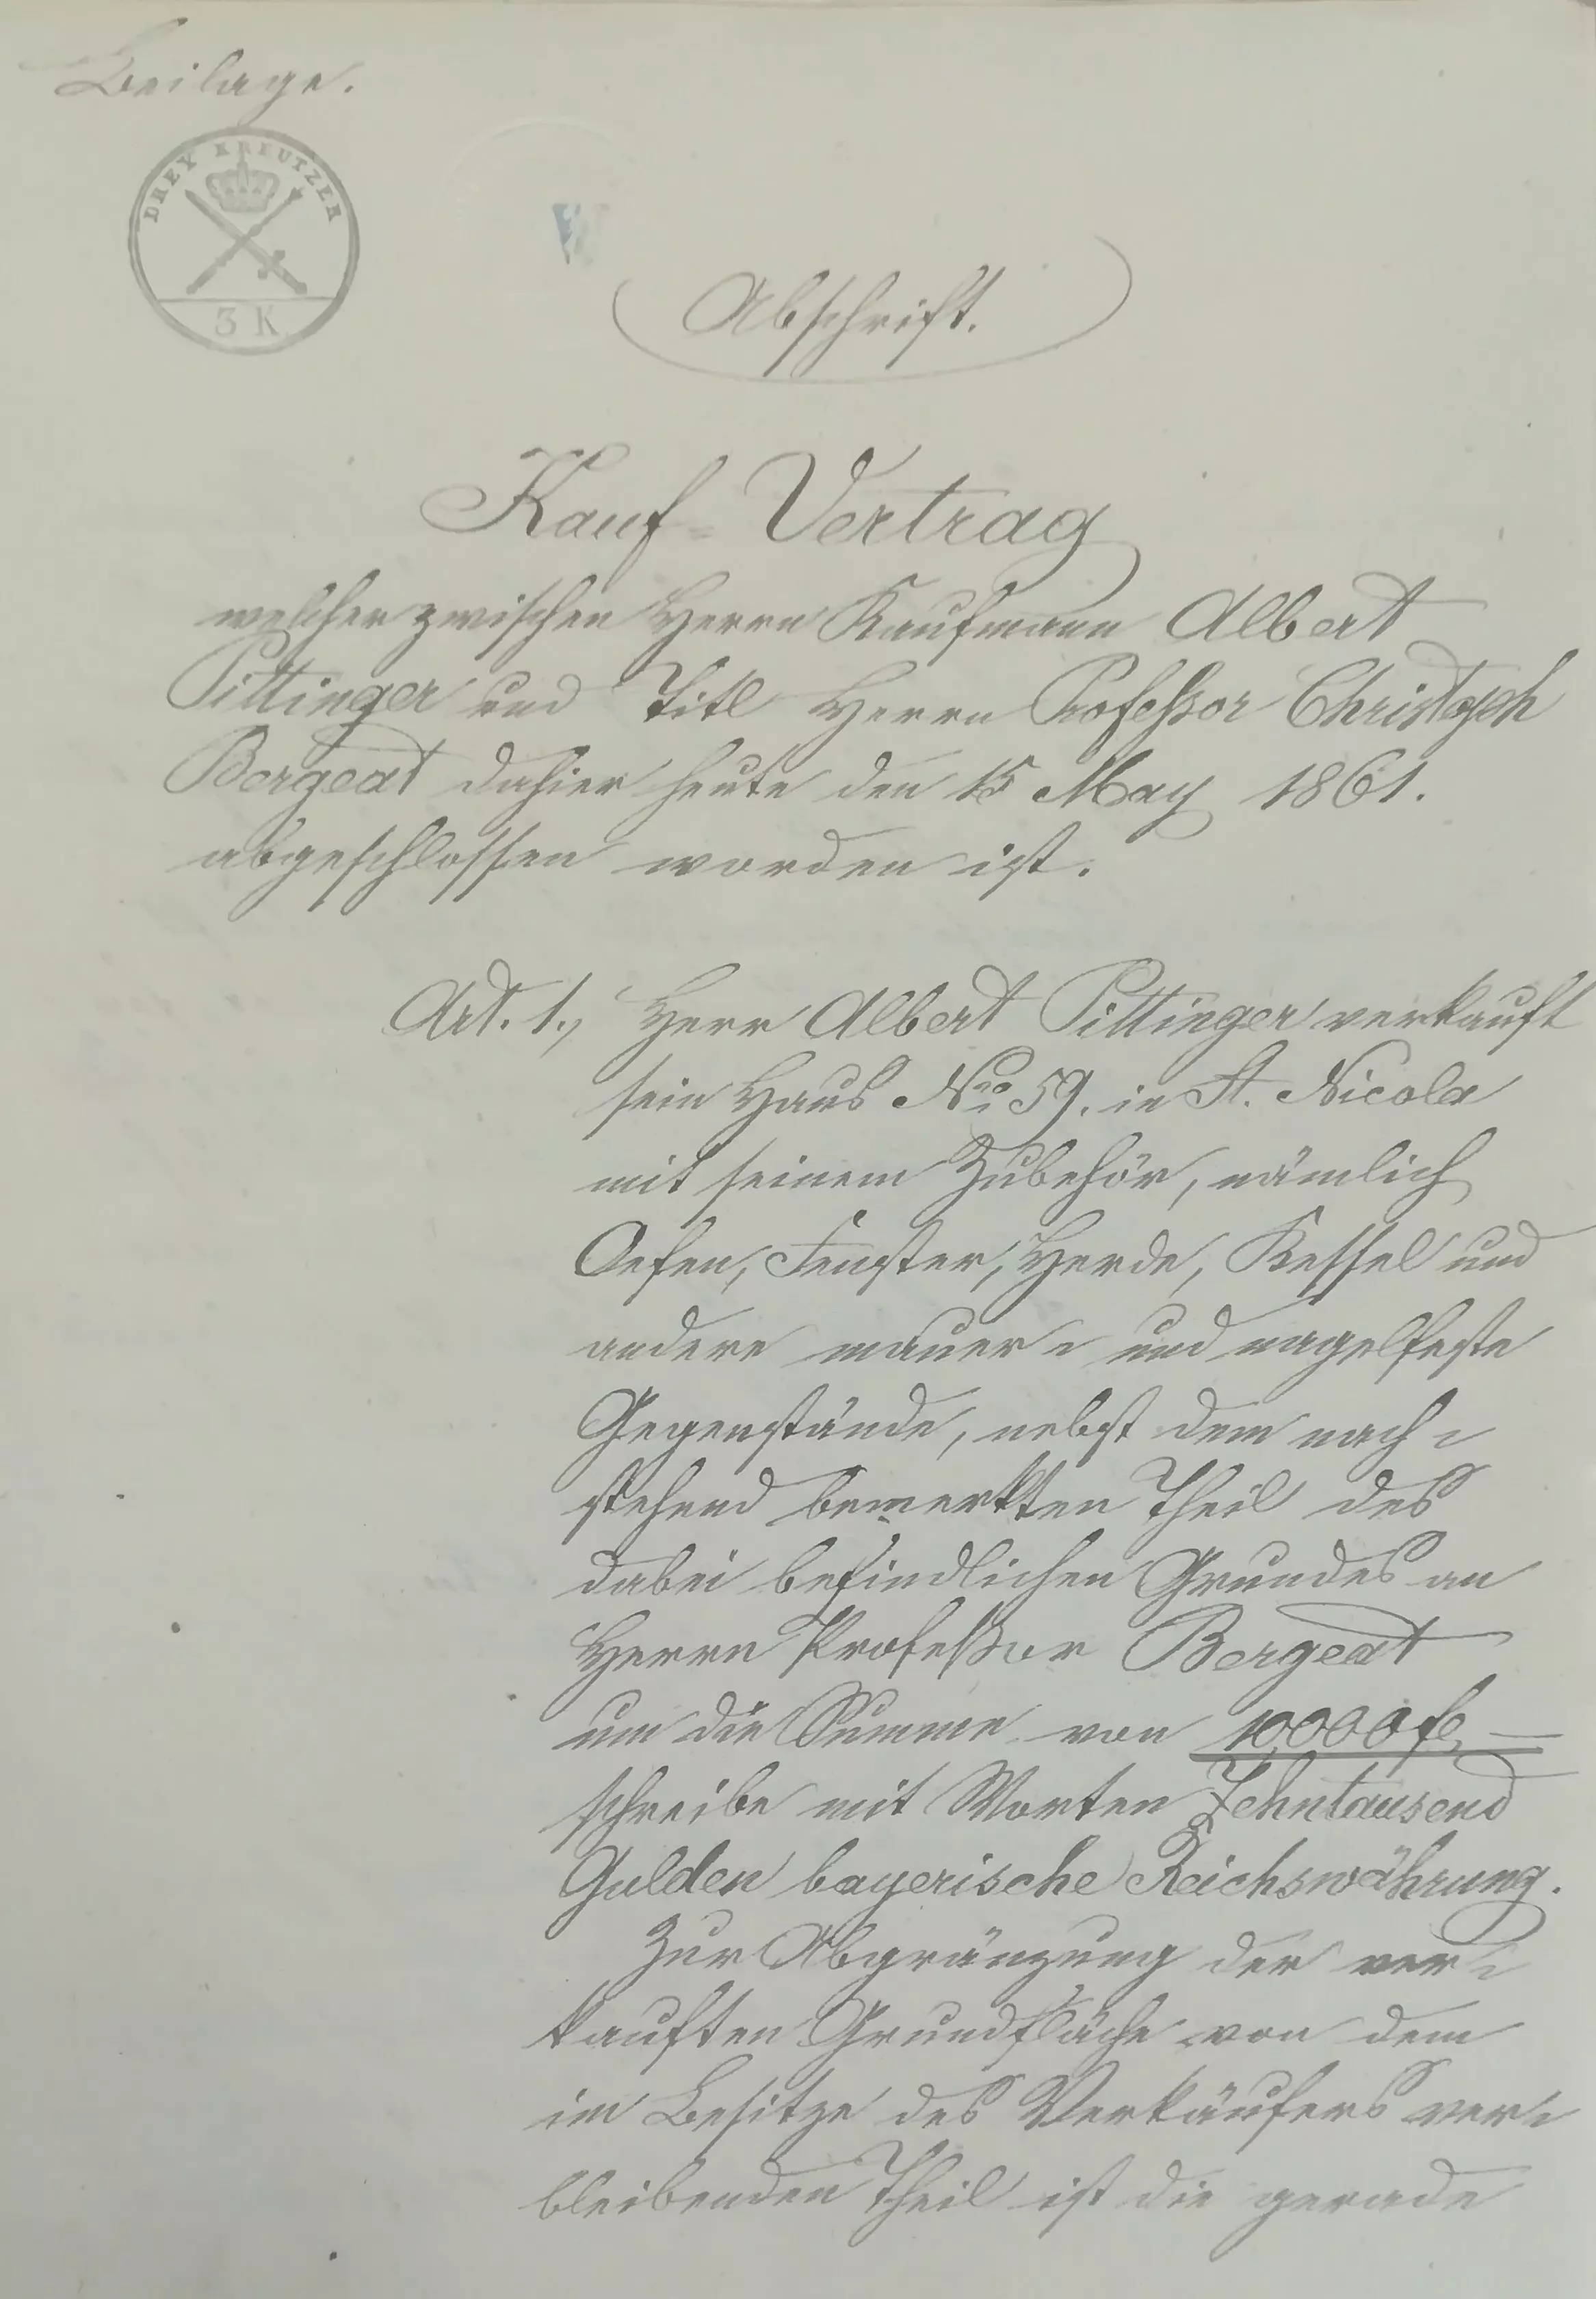 Beilage.
DREY KREUTZER
3 K
Abschrift.
Kauf-Vertrag
welcher zwischen Herrn Kaufmann Albert
Pittinger und Titl Herrn Professor Christoph
Bergeat dahier heute den 15 May 1861.
abgeschlossen worden ist.
Art. 1., Herr Albert Pittinger verkauft
sein Haus No 59. in St. Nicola
mit seinem Zubehör, nämlich
Oefen, Fenster, Herde, Kessel und
andere mauer- und nagelfeste
Gegenstände, nebst dem nach-
stehend bemerkten Theil des
dabei befindlichen Grundes an
Herrn Professor Bergeat
um die Summe von 10000 fl
schreibe mit Worten Zehntausend
Gulden bayerische Reichswährung.
Zur Abgränzung der ver-
kauften Grundfläche von dem
im Besitze des Verkäufers ver-
bleibenden Theil ist die gerade